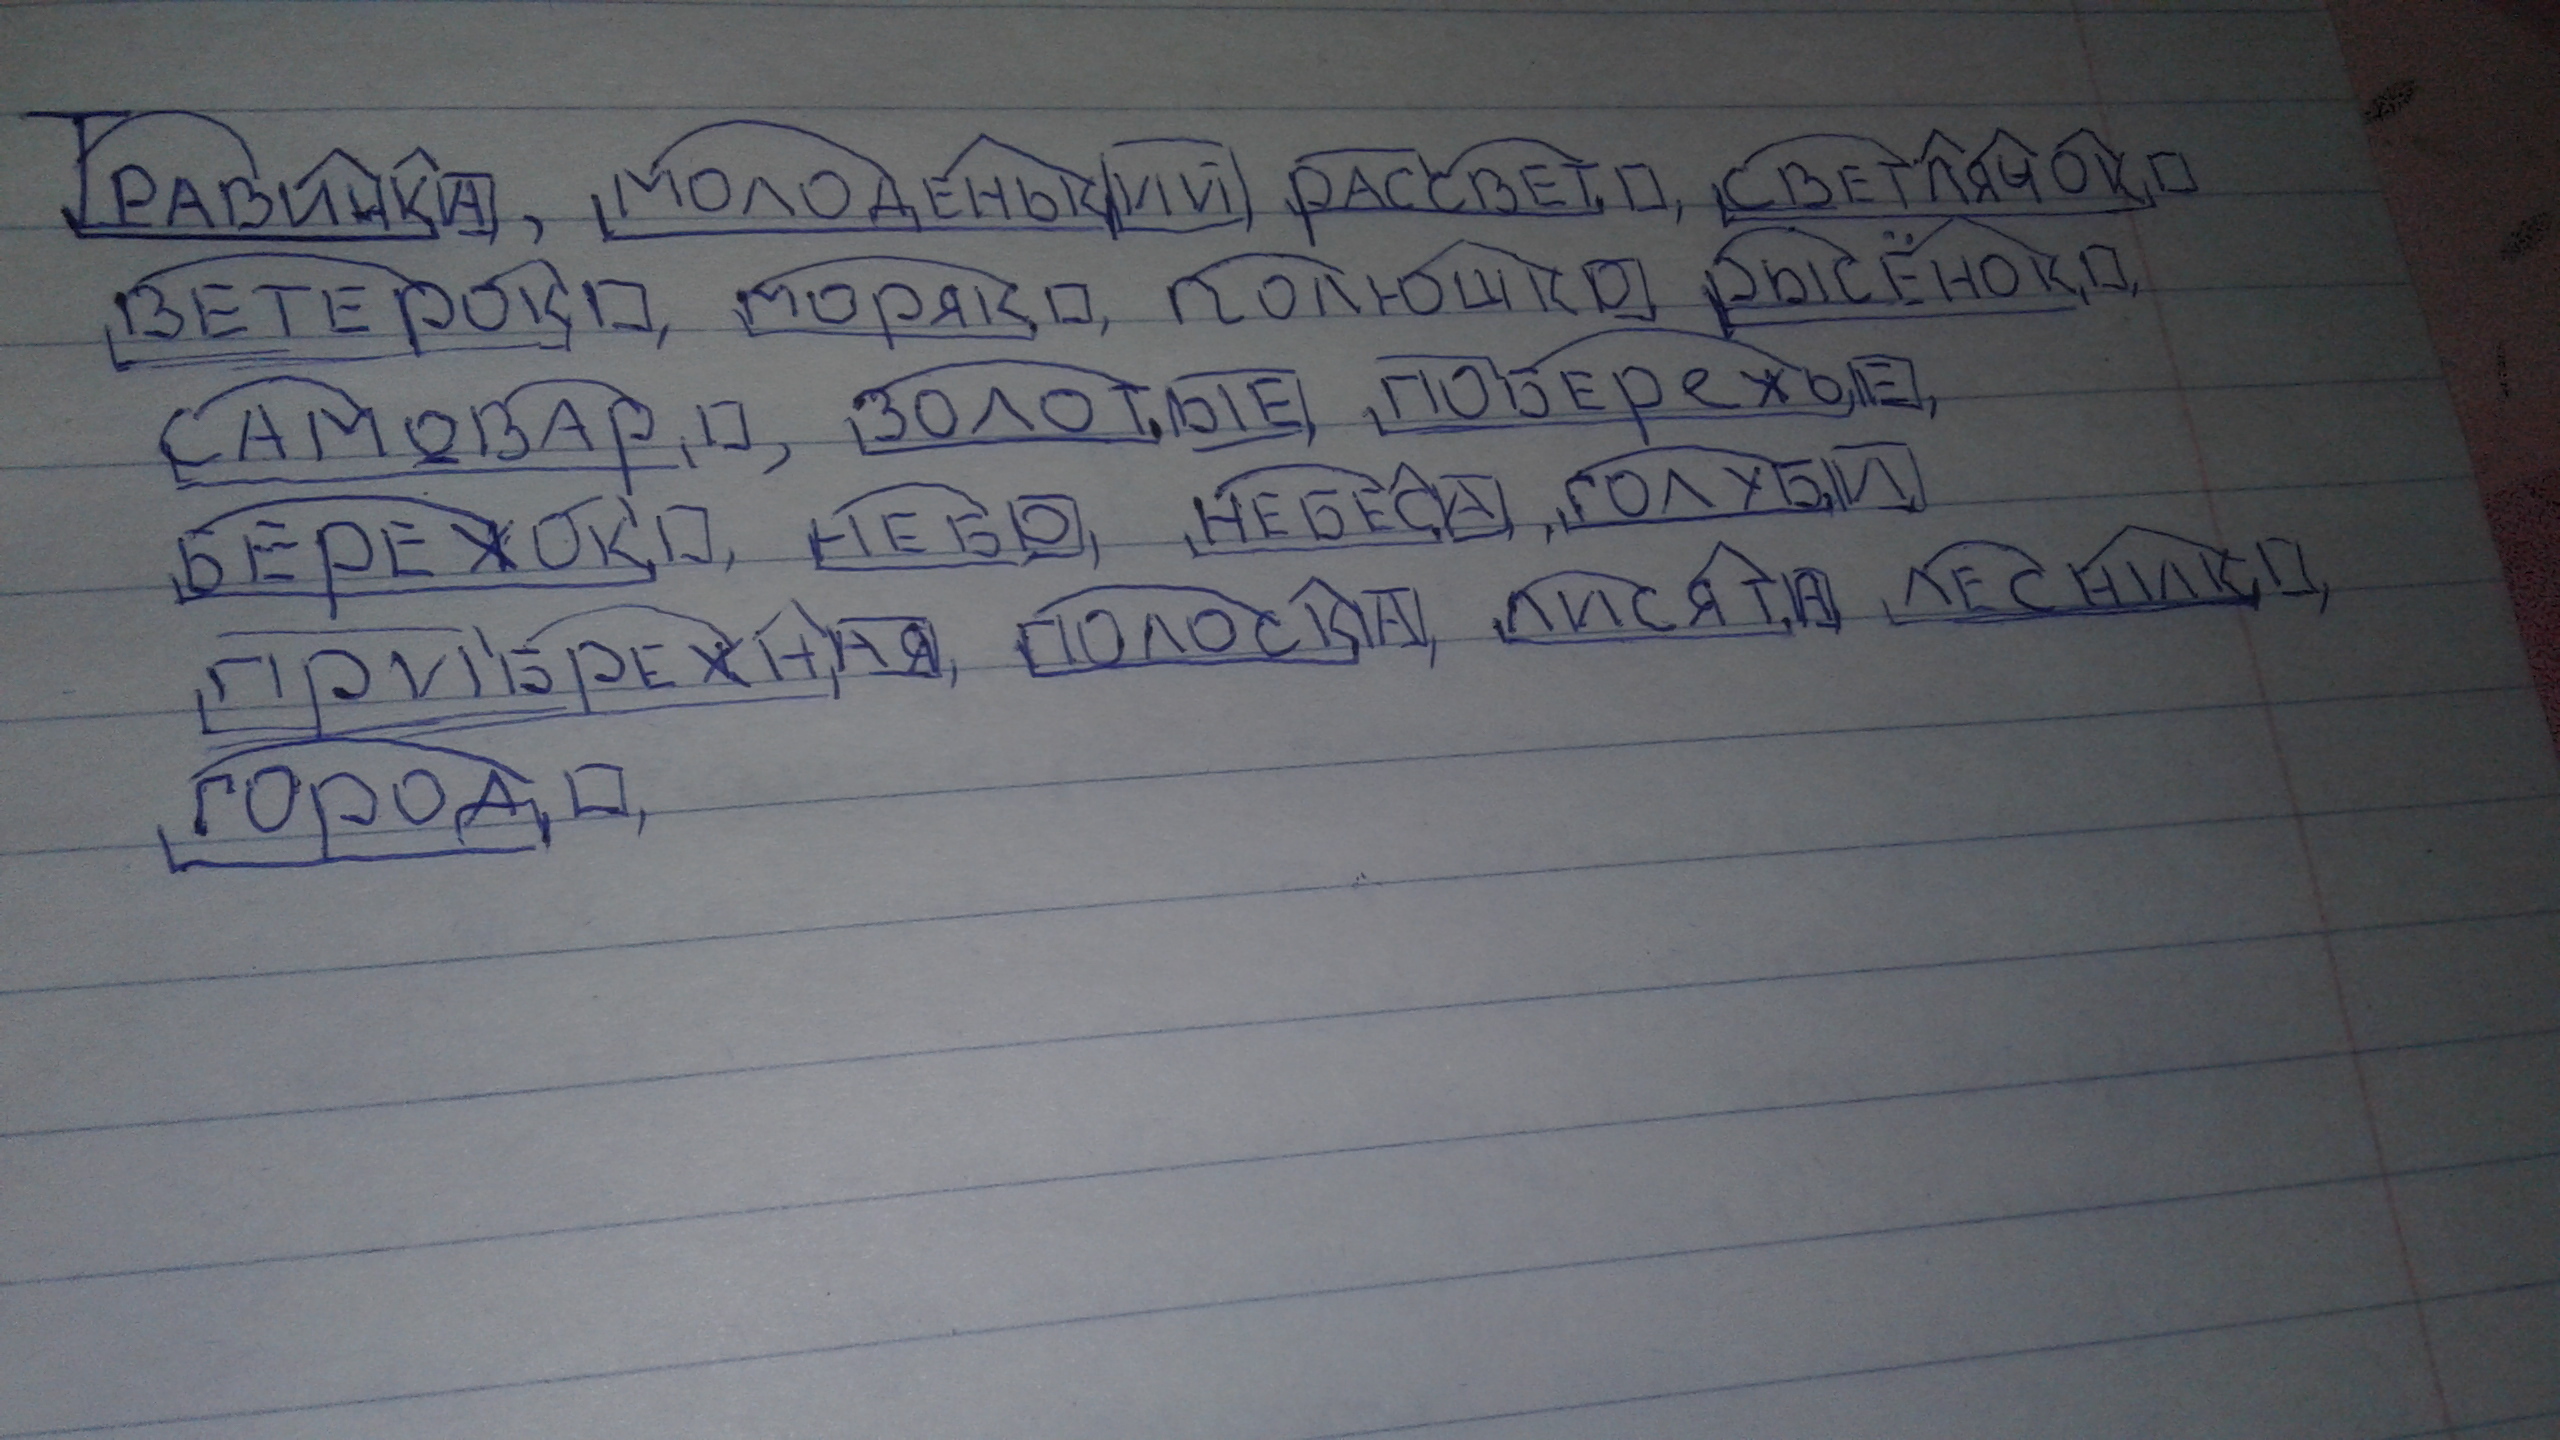 Травинка, молоденький рассвет, светлячок
ветерок, моряк, полюшко рысёнок,
самовар, золотые, побережье,
бережок, небо, небеса, голуби
прибрежная, полоска, лисята лесник,
город,